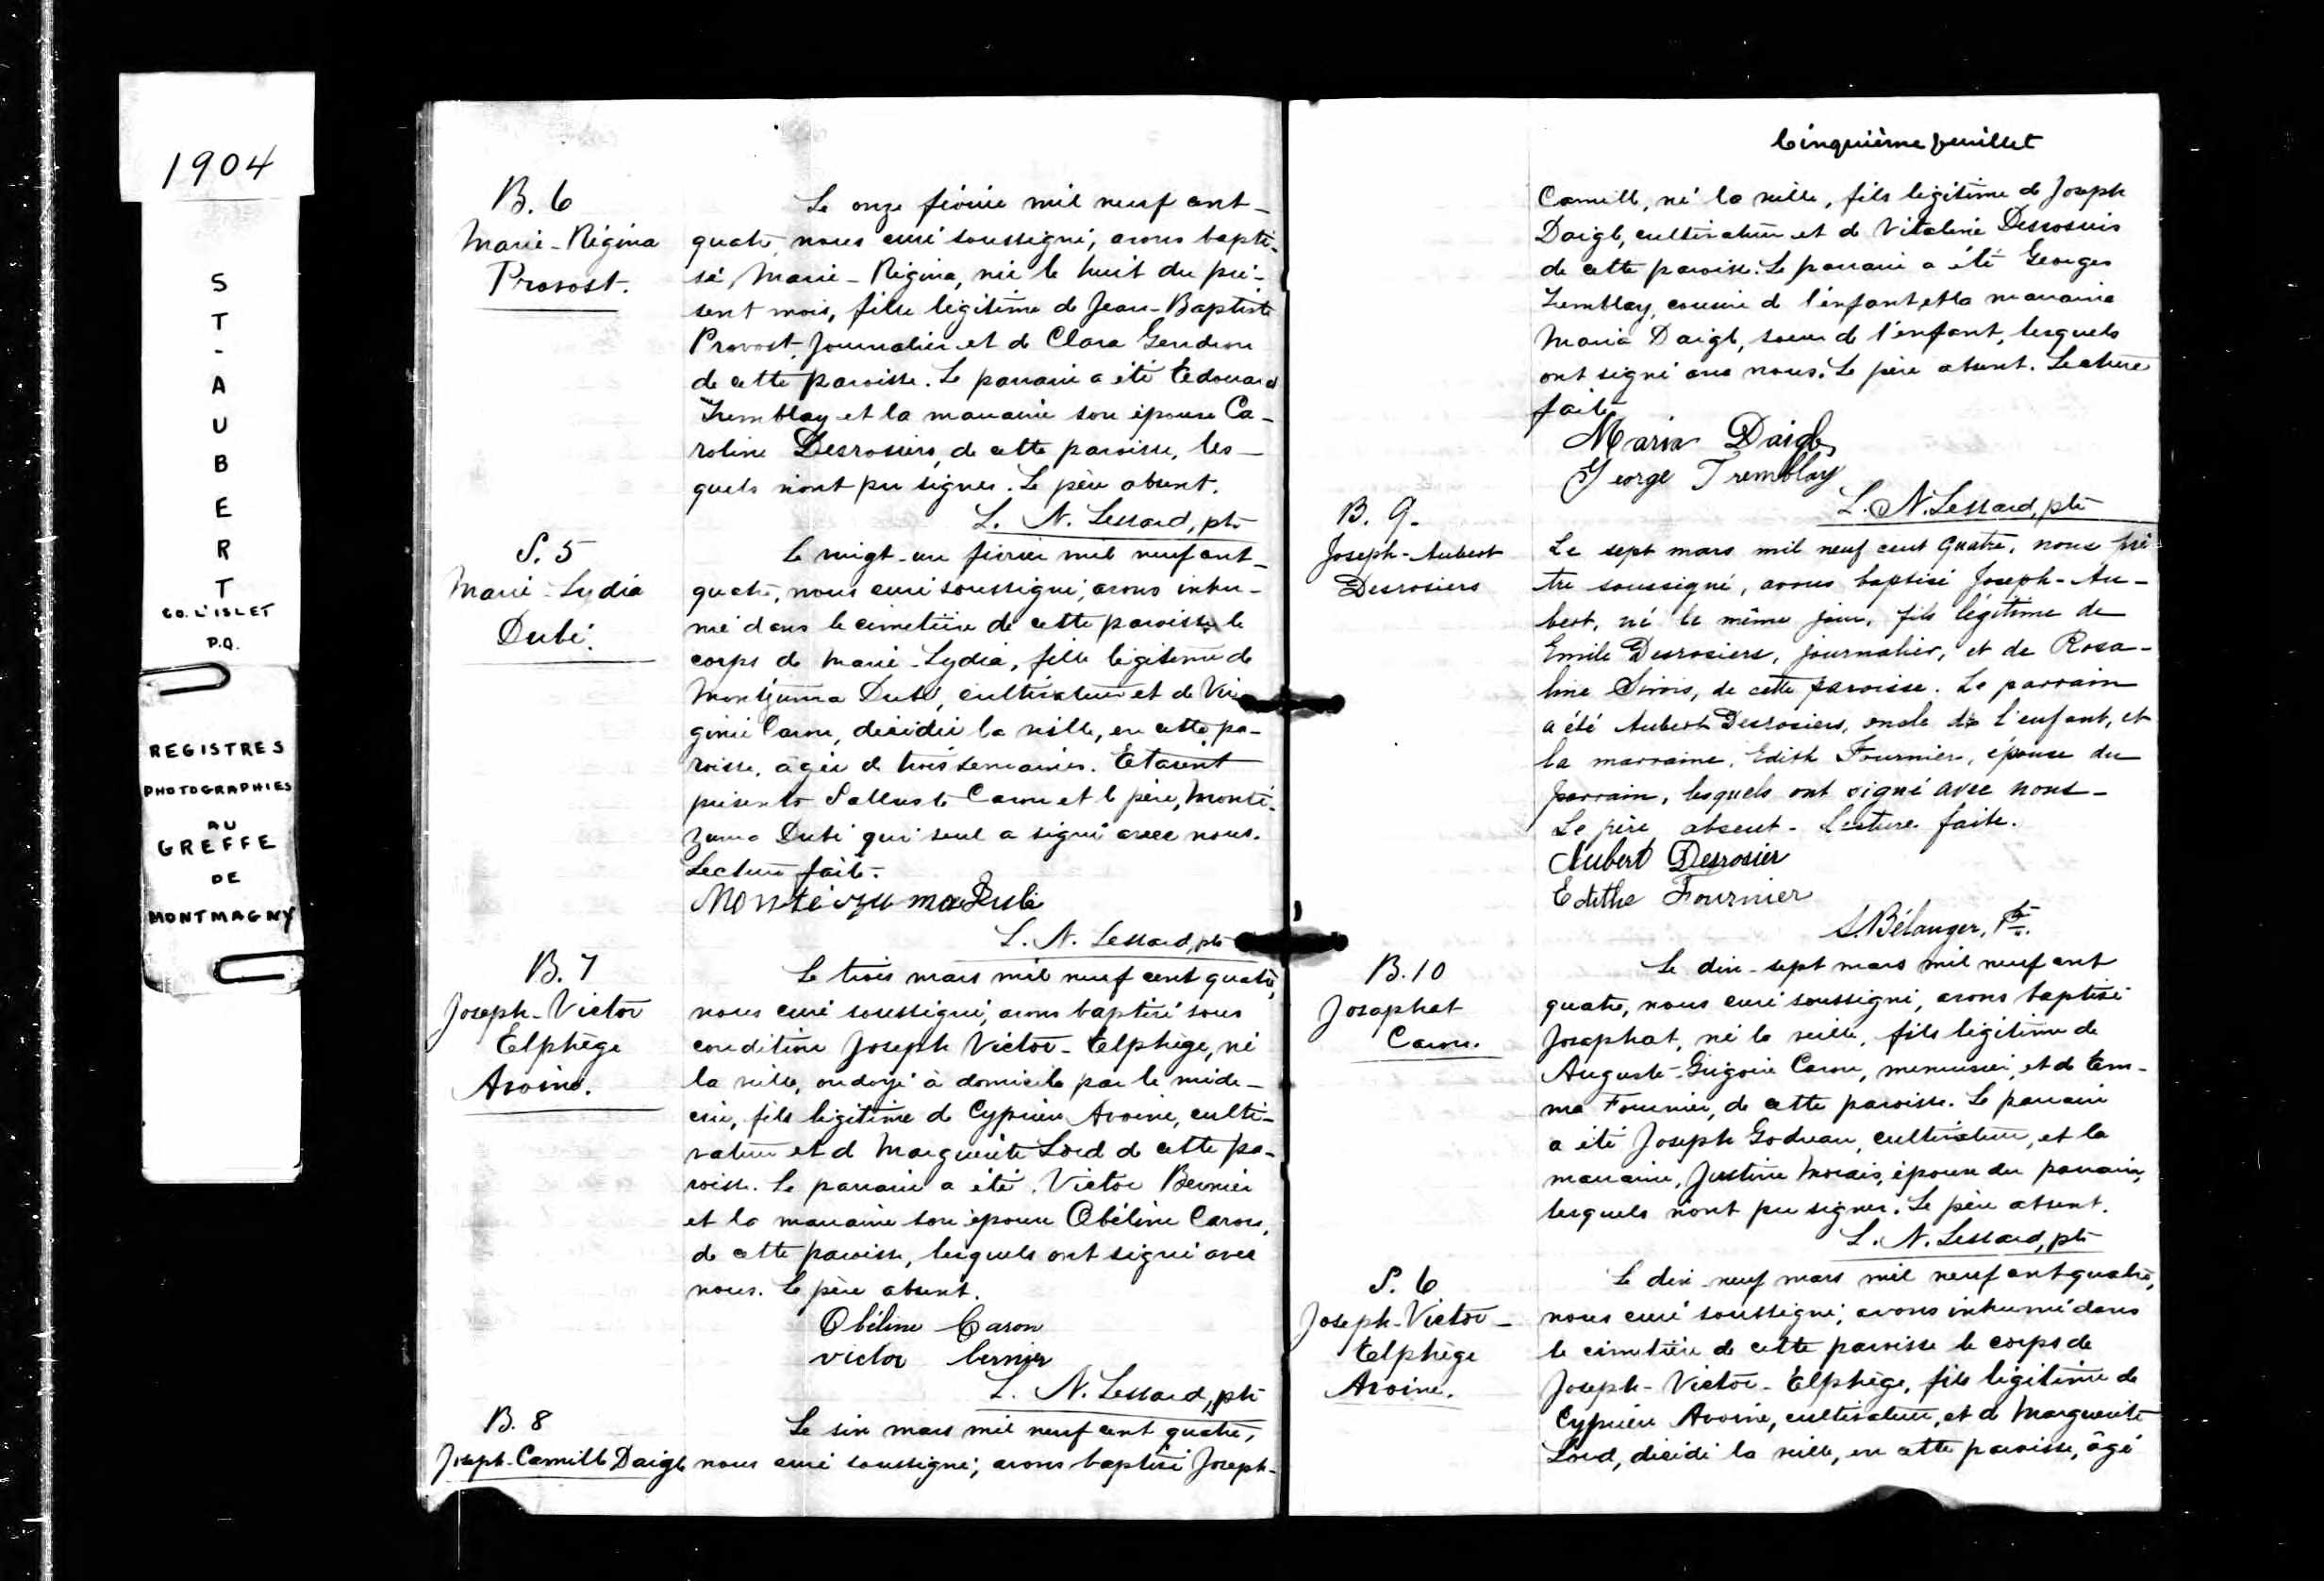 1904
S
T
-
A
U
B
E
R
T
CO. L'ISLET
P.Q.
REGISTRES
PHOTOGRAPHIES
AU
GREFFE
DE
MONTMAGNY
B. 6
Marie-Régina
Provost.
Le onze février mil neuf cent-
quatre, nous curé soussigné, avons bapti-
sé Marie-Régina, née le huit du pré-
sent mois, fille légitime de Jean-Baptiste
Provost, journalier et de Clara Gendron
de cette paroisse. Le parrain a été Edouard
Tremblay et la marraine son épouse Ca-
roline Desrosiers, de cette paroisse, les-
quels n'ont pu signer. Le père absent.
L. N. Lessard, ptre
S. 5
Marie-Lydia
Dubé.
Le vingt-un février mil neuf cent-
quatre, nous curé soussigné, avons inhu-
mé dans le cimetière de cette paroisse le
corps de Marie-Lydia, fille légitime de
Montézuma Dubé, cultivateur et de Vir
ginie Caron, décédée la veille, en cette pa-
roisse, âgée de trois semaines. Etaient
présents Salluste Caron et le père, Monté-
zuma Dubé qui seul a signé avec nous.
Lecture faite.
Montézuma Dubé
L. N. Lessard, ptre
B. 7
Joseph-Victor
Elphège
Avoine.
Le trois mars mil neuf cent quatre,
nous curé soussigné, avons baptisé sous
condition Joseph Victor-Elphège, né
la veille, ondoyé à domicile par le méde-
cin, fils légitime de Cyprien Avoine, culti-
vateur et de Marguerite Lord de cette pa-
roisse. Le parrain a été Victor Bernier
et la marraine son épouse Obéline Caron,
de cette paroisse, lesquels ont signé avec
nous. Le père absent.
Obéline Caron
victor bernier
L. N. Lessard, ptre
B. 8
Joseph-Camille Daigle
Le six mars mil neuf cent quatre,
nous curé soussigné, avons baptisé Joseph-
Cinquième feuillet
Camille, né la veille, fils légitime de Joseph
Daigle, cultivateur et de Vitaline Desrosiers
de cette paroisse. Le parrain a été Georges
Tremblay, cousin de l'enfant, et la marraine
Maria Daigle, soeur de l'enfant, lesquels
ont signé avec nous. Le père absent. Lecture
faite
Maria Daigle
George Tremblay
L. N. Lessard, ptre
B. 9.
Joseph-Aubert
Desrosiers
Le sept mars mil neuf cent quatre, nous prê
tre soussigné, avons baptisé Joseph-Au-
bert, né le même jour, fils légitime de
Emile Desrosiers, journalier, et de Rosa-
line Sirois, de cette paroisse. Le parrain
a été Aubert Desrosiers, oncle de l'enfant, et
la marraine, Edith Fournier, épouse du
parrain, lesquels ont signé avec nous-
Le père absent- Lecture faite.
Aubert Desrosier
Edithe Fournier
S. Bélanger, Ptre.
B. 10
Josaphat
Caron.
Le dix-sept mars mil neuf cent
quatre, nous curé soussigné, avons baptisé
Josaphat, né la veille, fils légitime de
Auguste-Grégoire Caron, menuisier, et de Em-
ma Fournier, de cette paroisse. Le parrain
a été Joseph Godreau, cultivateur, et la
marraine, Justine Morais, épouse du parrain,
lesquels n'ont pu signer. Le père absent.
L. N. Lessard, ptre
S. 6
Joseph-Victor-
Elphège
Avoine.
Le dix-neuf mars mil neuf cent quatre,
nous curé soussigné, avons inhumé dans
le cimetière de cette paroisse le corps de
Joseph-Victor-Elphège, fils légitime de
Cyprien Avoine, cultivateur, et de Marguerite
Lord, décédé la veille, en cette paroisse, âgé